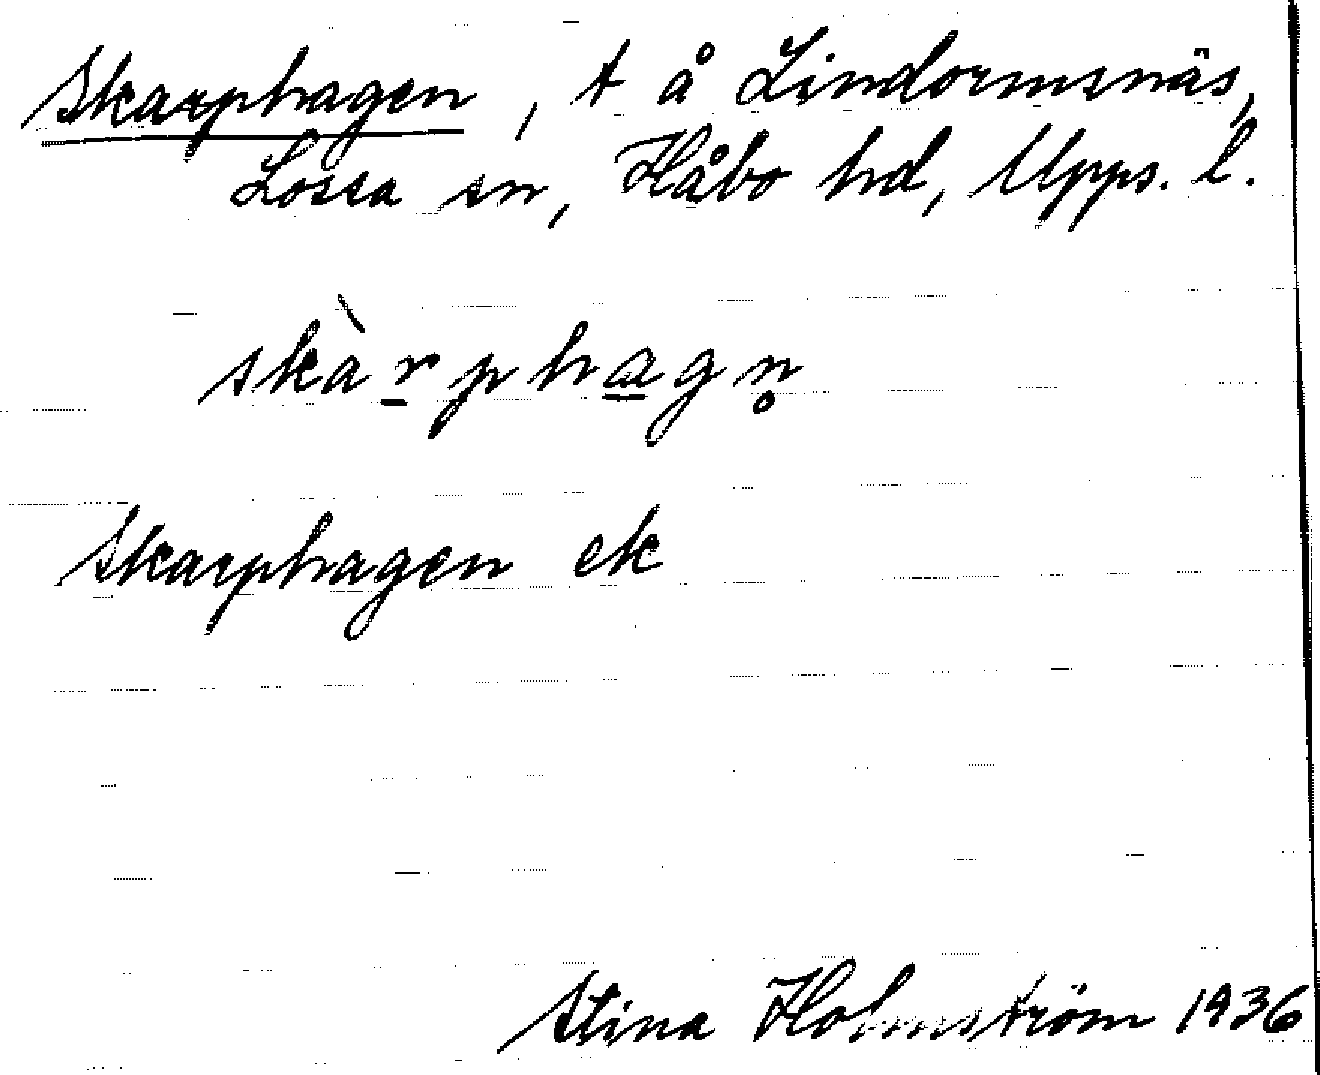 Skarphagen, t å Lindormsnäs,
Lossa sn, Håbo hd, Upps. l.
skàrphagn̥
Skarphagen ek
Stina Holmström 1936